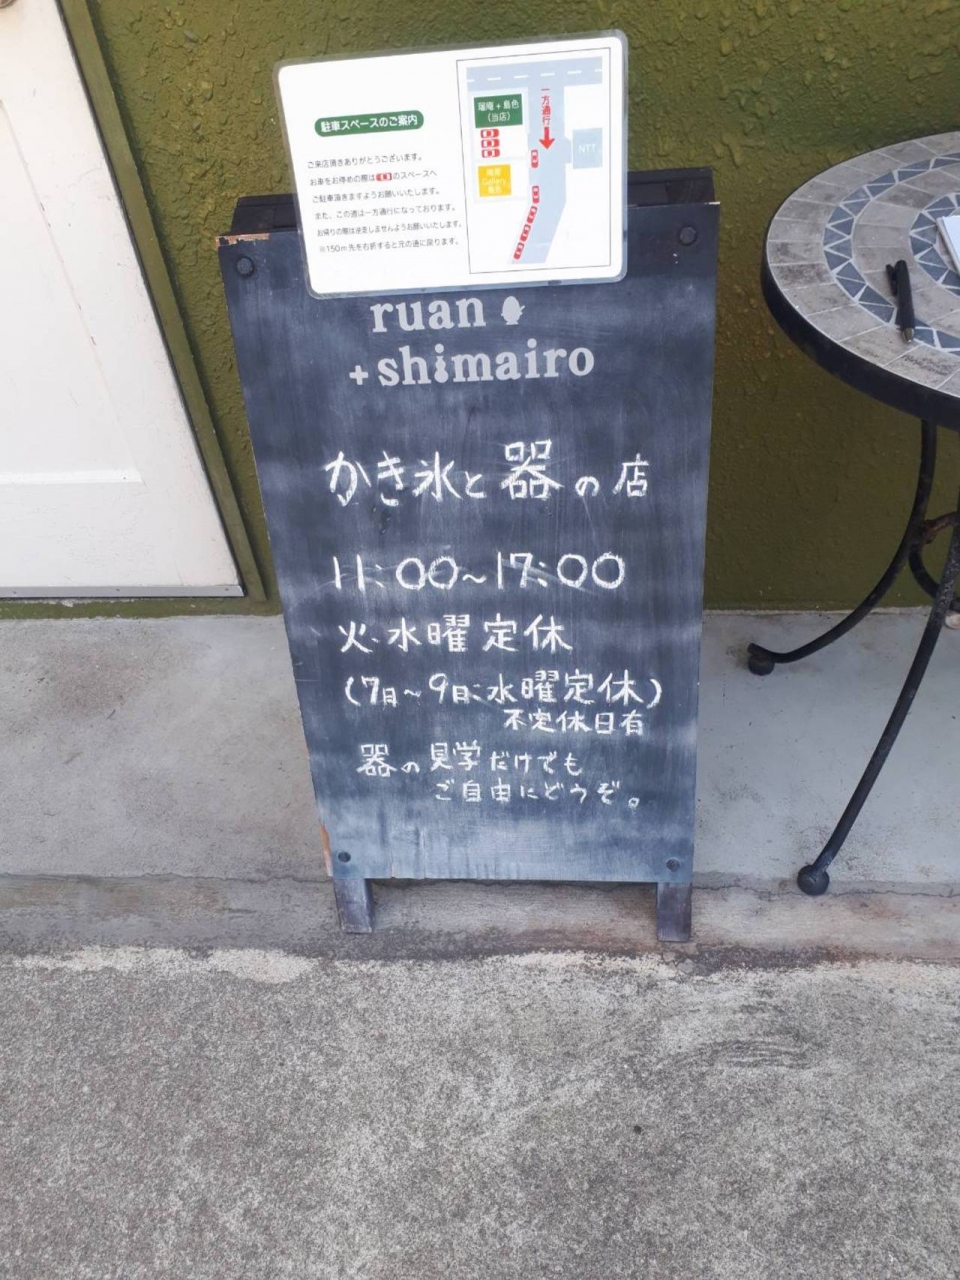 駐車スペースのご案内
ご来店頂きありがとうございます。
お車をお停めの際は のスペースへ
ご駐車頂きますようお願いいたします。
また、この道は一方通行になっております。
お帰りの際は逆走しませんようお願いいたします。
※150m先を右折すると元の道に戻ります。
瑠庵+島色
(当店)
一方通行
NTT
ruan
+shimairo
かき氷と器の店
11:00~17:00
火・水曜定休
(7月~9月:水曜定休)
不定休日有
器の見学だけでも
ご自由にどうぞ。